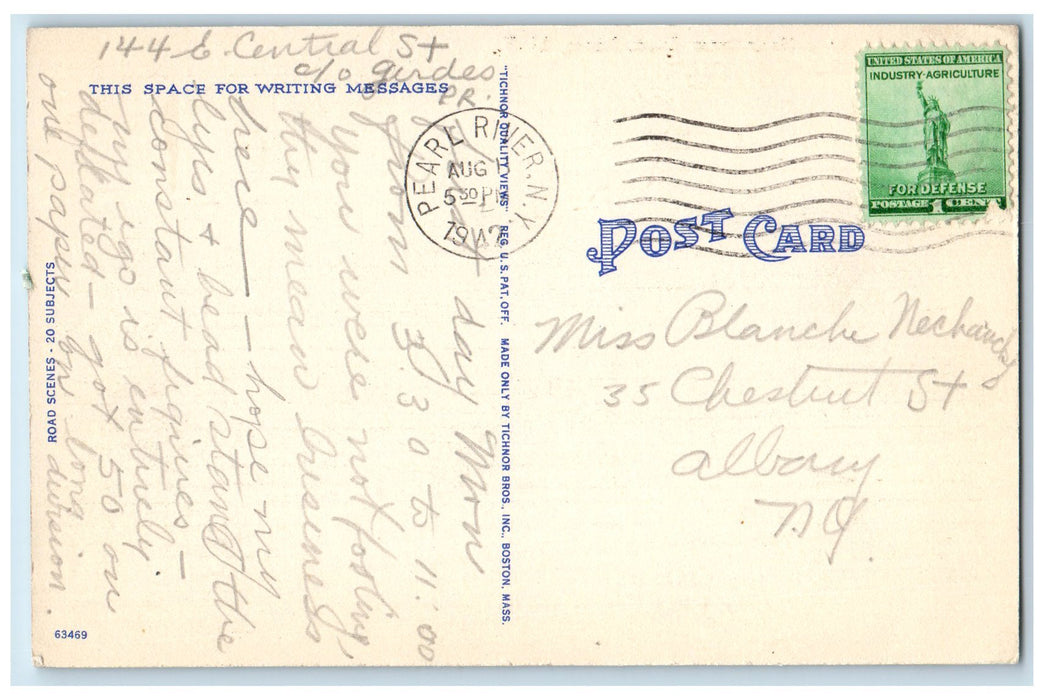 144 E. Central St
c/o Gerdes
P.R.
THIS SPACE FOR WRITING MESSAGES
1st day Mon
from 8.30 to 11:00
You were not fooling,
they mean business
here — hope my
lips & head stand the
constant figures —
my ego is entirely
deflated — got 50 on
one paper on long
division.
ROAD SCENES - 20 SUBJECTS
63469
"TICHNOR QUALITY VIEWS" REG. U. S. PAT. OFF. MADE ONLY BY TICHNOR BROS., INC., BOSTON, MASS.
PEARL RIVER, N.Y.
AUG
5 30 PM
1942
UNITED STATES OF AMERICA
INDUSTRY-AGRICULTURE
FOR DEFENSE
POSTAGE 1 CENT
POST CARD
Miss Blanche
35 Chestnut St
Albany
N.Y.